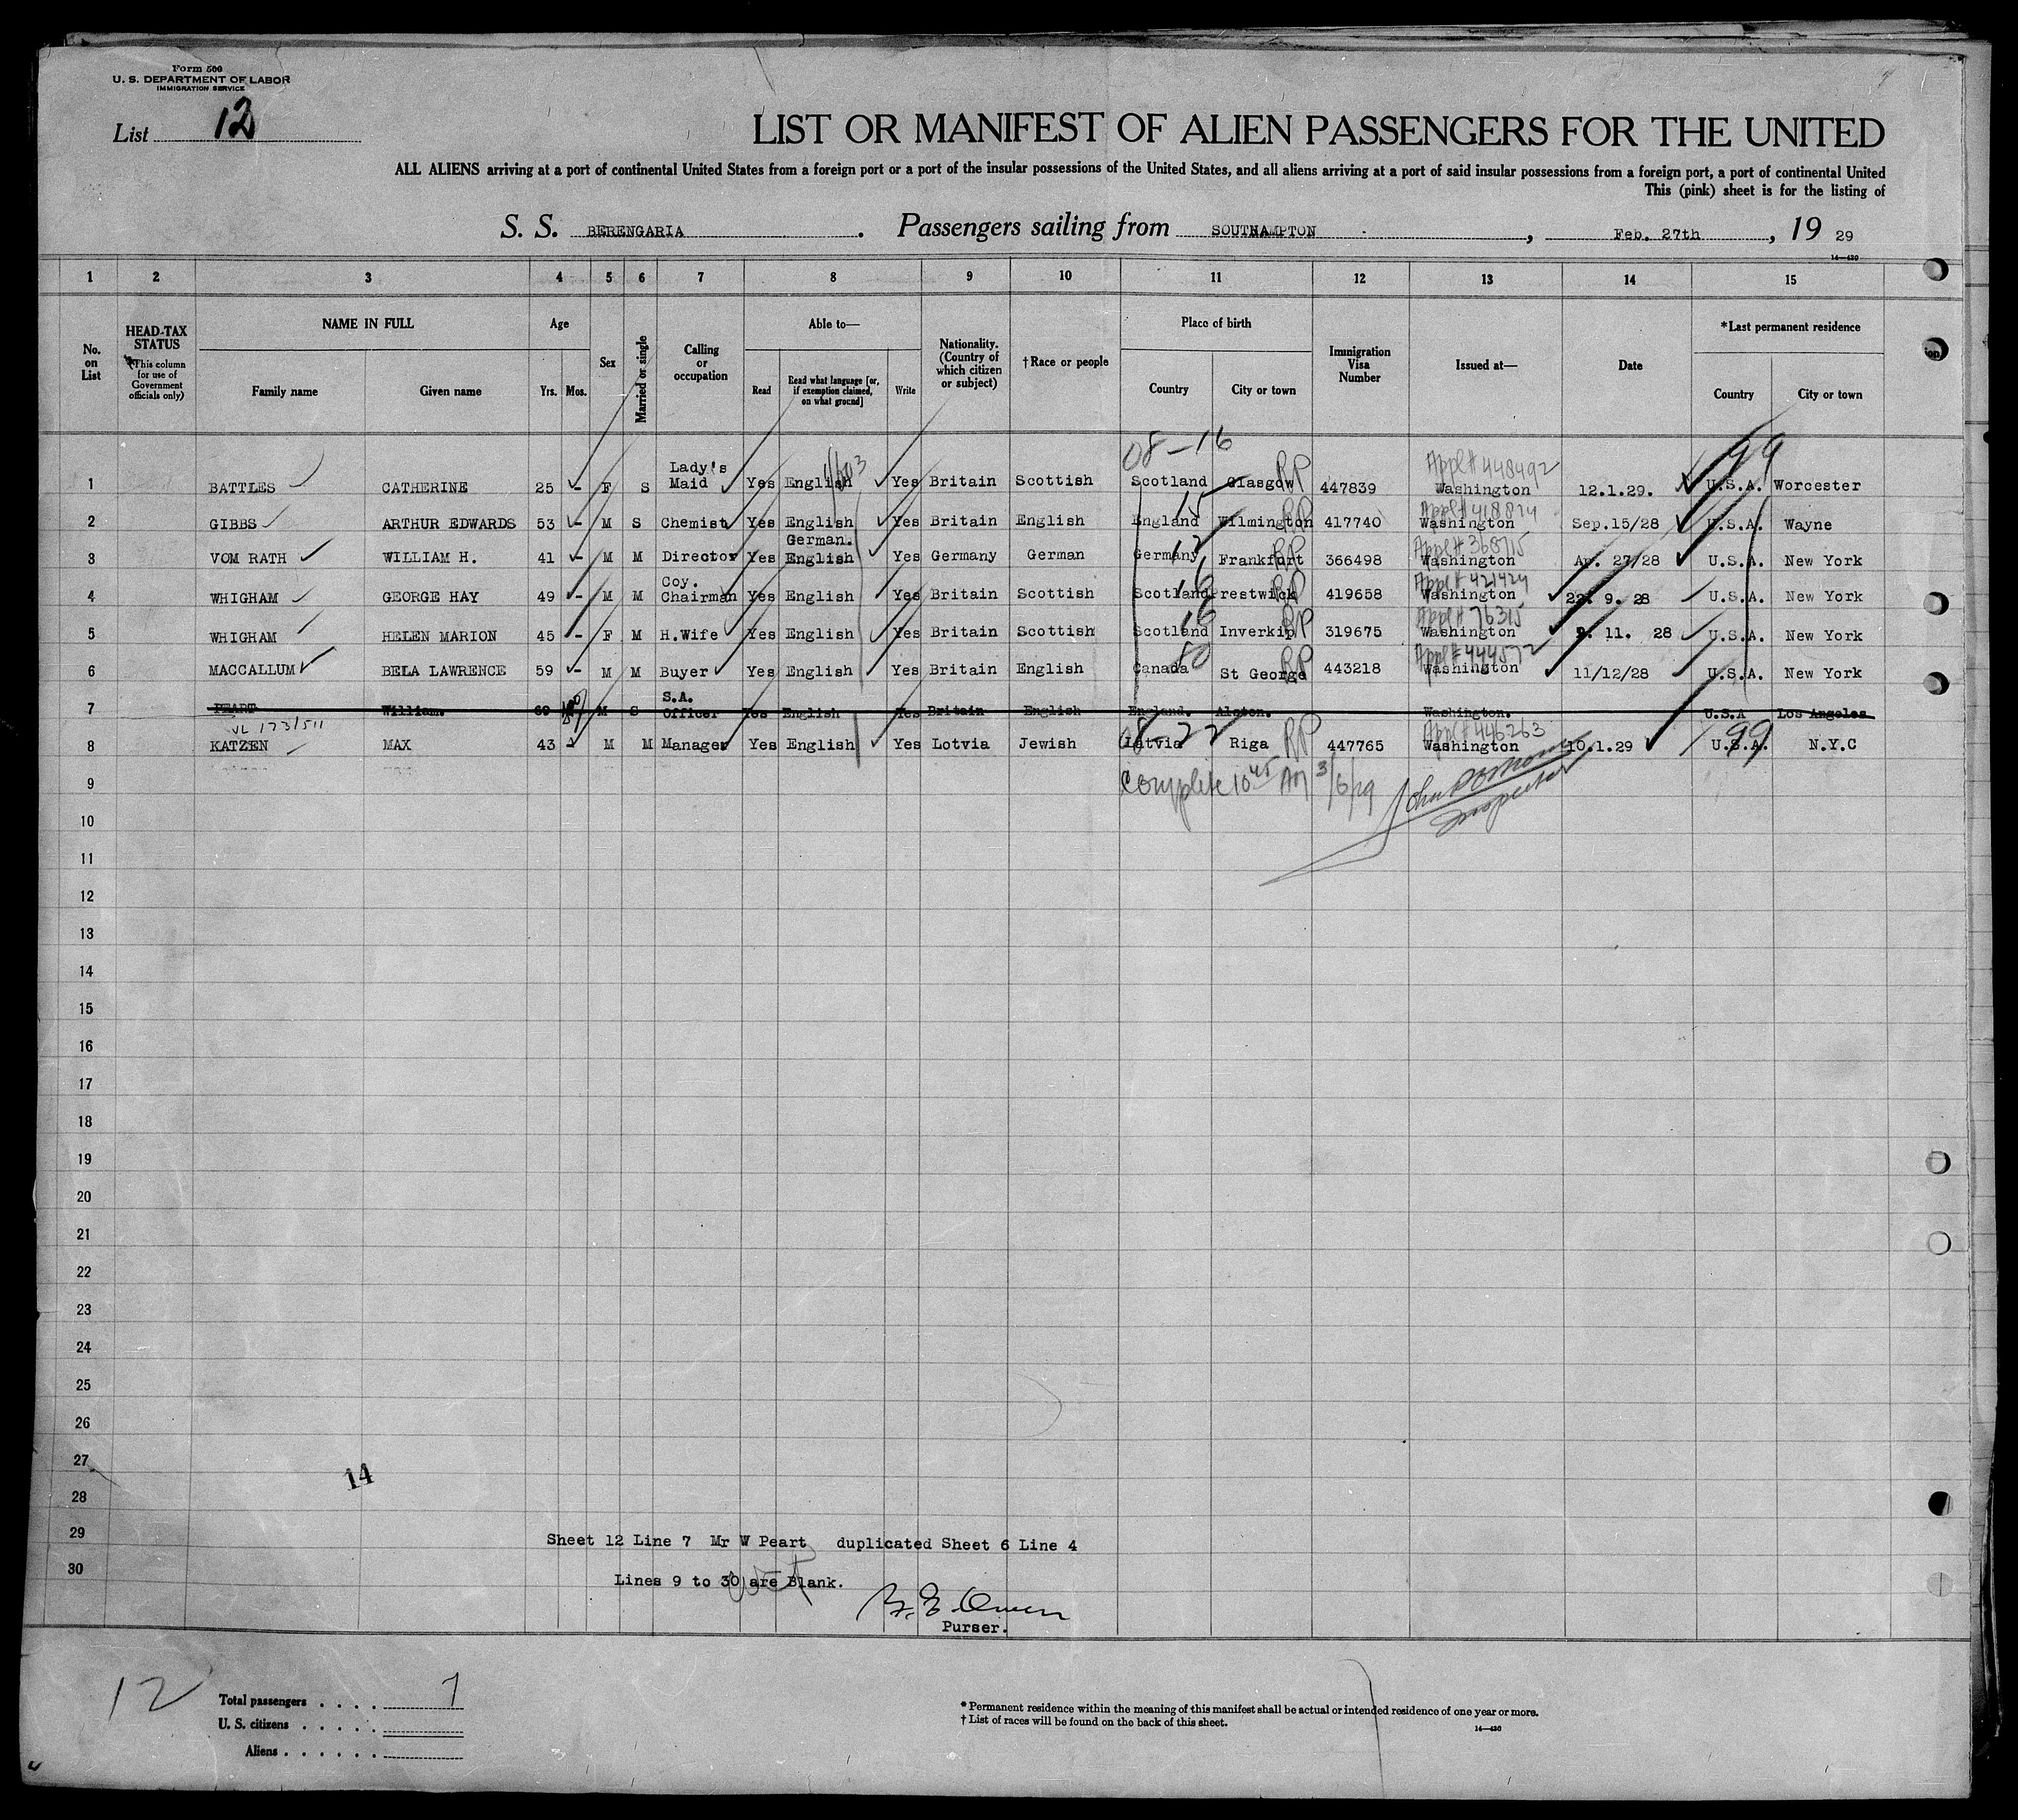 Form 500
U. S. DEPARTMENT OF LABOR
IMMIGRATION SERVICE
List 12
LIST OR MANIFEST OF ALIEN PASSENGERS FOR THE UNITED
ALL ALIENS arriving at a port of continental United States from a foreign port or a port of the insular possessions of the United States, and all aliens arriving at a port of said insular possessions from a foreign port, a port of continental United
This (pink) sheet is for the listing of
S. S. BERENGARIA . Passengers sailing from SOUTHAMPTON , Feb. 27th , 19 29
14—430
1 2 3 4 5 6 7 8 9 10 11 12 13 14 15
No. on List
HEAD-TAX STATUS (This column for use of Government officials only)
NAME IN FULL Family name Given name
Age Yrs. Mos.
Sex
Married or single
Calling or occupation
Able to— Read Read what language [or, if exemption claimed, on what ground] Write
Nationality. (Country of which citizen or subject)
†Race or people
Place of birth Country City or town
Immigration Visa Number
Issued at—
Date
*Last permanent residence Country City or town
08-16 99
Appl# 448492
1 BATTLES CATHERINE 25 - F S Lady's Maid Yes English Yes Britain Scottish Scotland Glasgow RP 447839 Washington 12.1.29. U.S.A. Worcester
15
2 GIBBS ARTHUR EDWARDS 53 - M S Chemist Yes English Yes Britain English England Wilmington RP 417740 Washington Sep.15/28 U.S.A. Wayne
12
3 VOM RATH WILLIAM H. 41 - M M Director Yes German. English Yes Germany German Germany Frankfort RP 366498 Washington Ap. 27/28 U.S.A. New York
Appl# 421424
4 WHIGHAM GEORGE HAY 49 - M M Coy. Chairman Yes English Yes Britain Scottish Scotland Prestwick RP 419658 Washington 22. 9. 28 U.S.A. New York
16 Appl# 76315
5 WHIGHAM HELEN MARION 45 - F M H.Wife Yes English Yes Britain Scottish Scotland Inverkip RP 319675 Washington 9. 11. 28 U.S.A. New York
80 Appl# 444572
6 MACCALLUM BELA LAWRENCE 59 - M M Buyer Yes English Yes Britain English Canada St George RP 443218 Washington 11/12/28 U.S.A. New York
7 PEART William. 60 M S S.A. Officer Yes English Yes Britain English England. Alston. Washington. U.S.A Los Angeles
VL 173/511 Appl# 446263
8 KATZEN MAX 43 - M M Manager Yes English Yes Lotvia Jewish Latvia Riga RP 447765 Washington 10.1.29 U.S.A. N.Y.C
99
9 Complete 10 45 AM 3/6/29
Inspector
10
11
12
13
14
15
16
17
18
19
20
21
22
23
24
25
26
27
14
28
29 Sheet 12 Line 7 Mr W Peart duplicated Sheet 6 Line 4
30 Lines 9 to 30 are Blank.
Owen
Purser.
12
Total passengers . . . . 7
U. S. citizens . . . . .
Aliens . . . . . .
* Permanent residence within the meaning of this manifest shall be actual or intended residence of one year or more.
† List of races will be found on the back of this sheet.
14—430